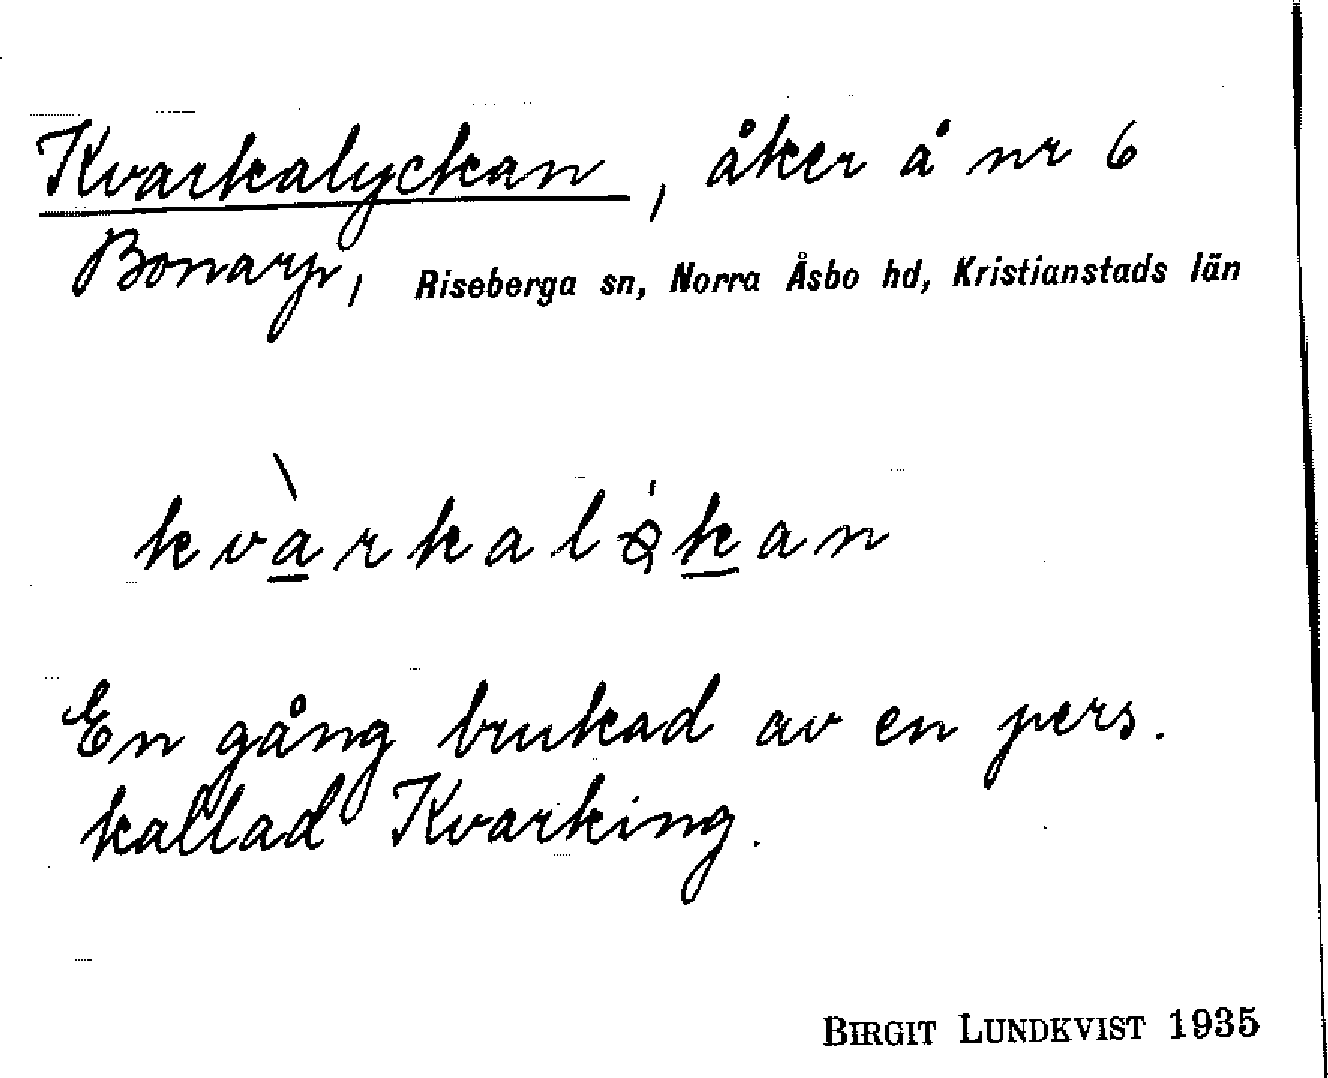 Kvarkalyckan, åker å nr 6
Bonarp, Riseberga sn, Norra Åsbo hd, Kristianstads län
kvàrkaløkan
En gång brukad av en pers.
kallad Kvarking.
BIRGIT LUNDKVIST 1935